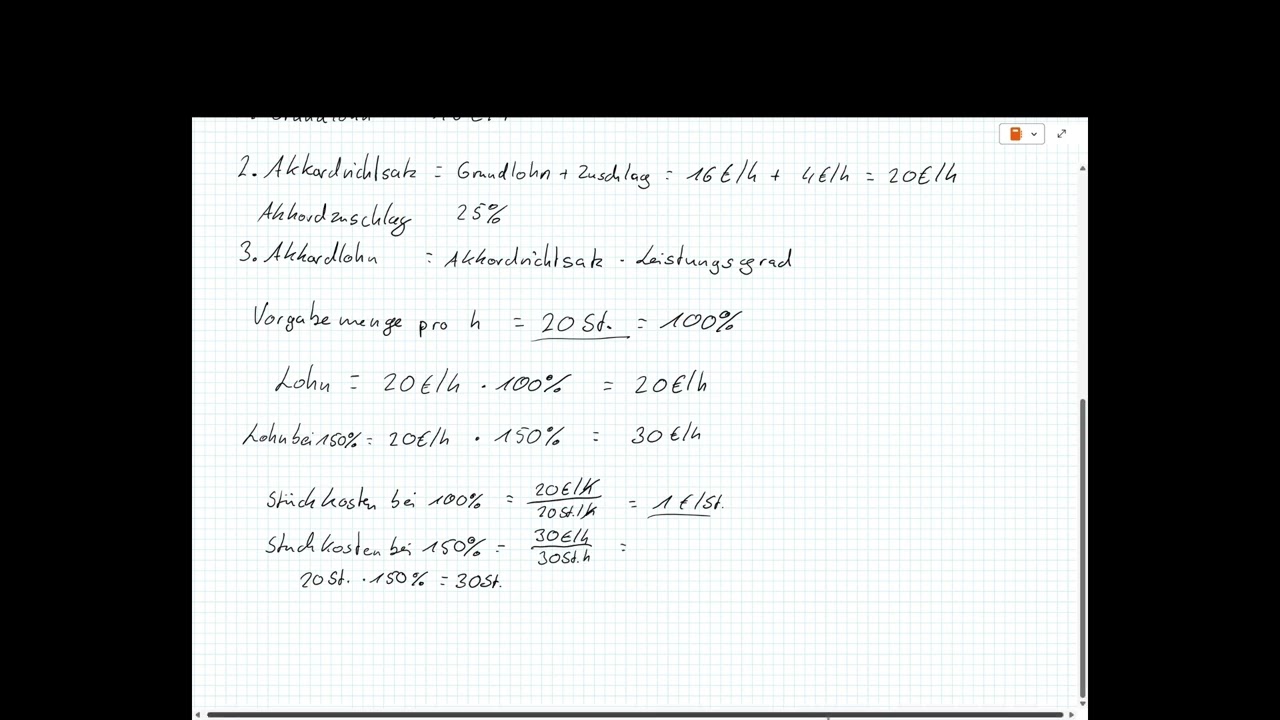 2. Akkordrichtsatz = Grundlohn + Zuschlag = 16€/h + 4€/h = 20€/h
Akkordzuschlag 25%
3. Akkordlohn = Akkordrichtsatz · Leistungsgrad
Vorgabemenge pro h = 20 St. = 100%
Lohn = 20€/h · 100% = 20€/h
Lohn bei 150% = 20€/h · 150% = 30€/h
Stückkosten bei 100% = 20€/h / 20St./h = 1€/St.
Stückkosten bei 150% = 30€/h / 30St.h =
20St. · 150% = 30St.